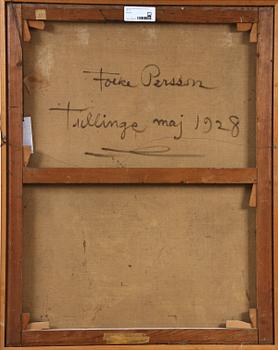 Folke Persson
Tullinge maj 1928